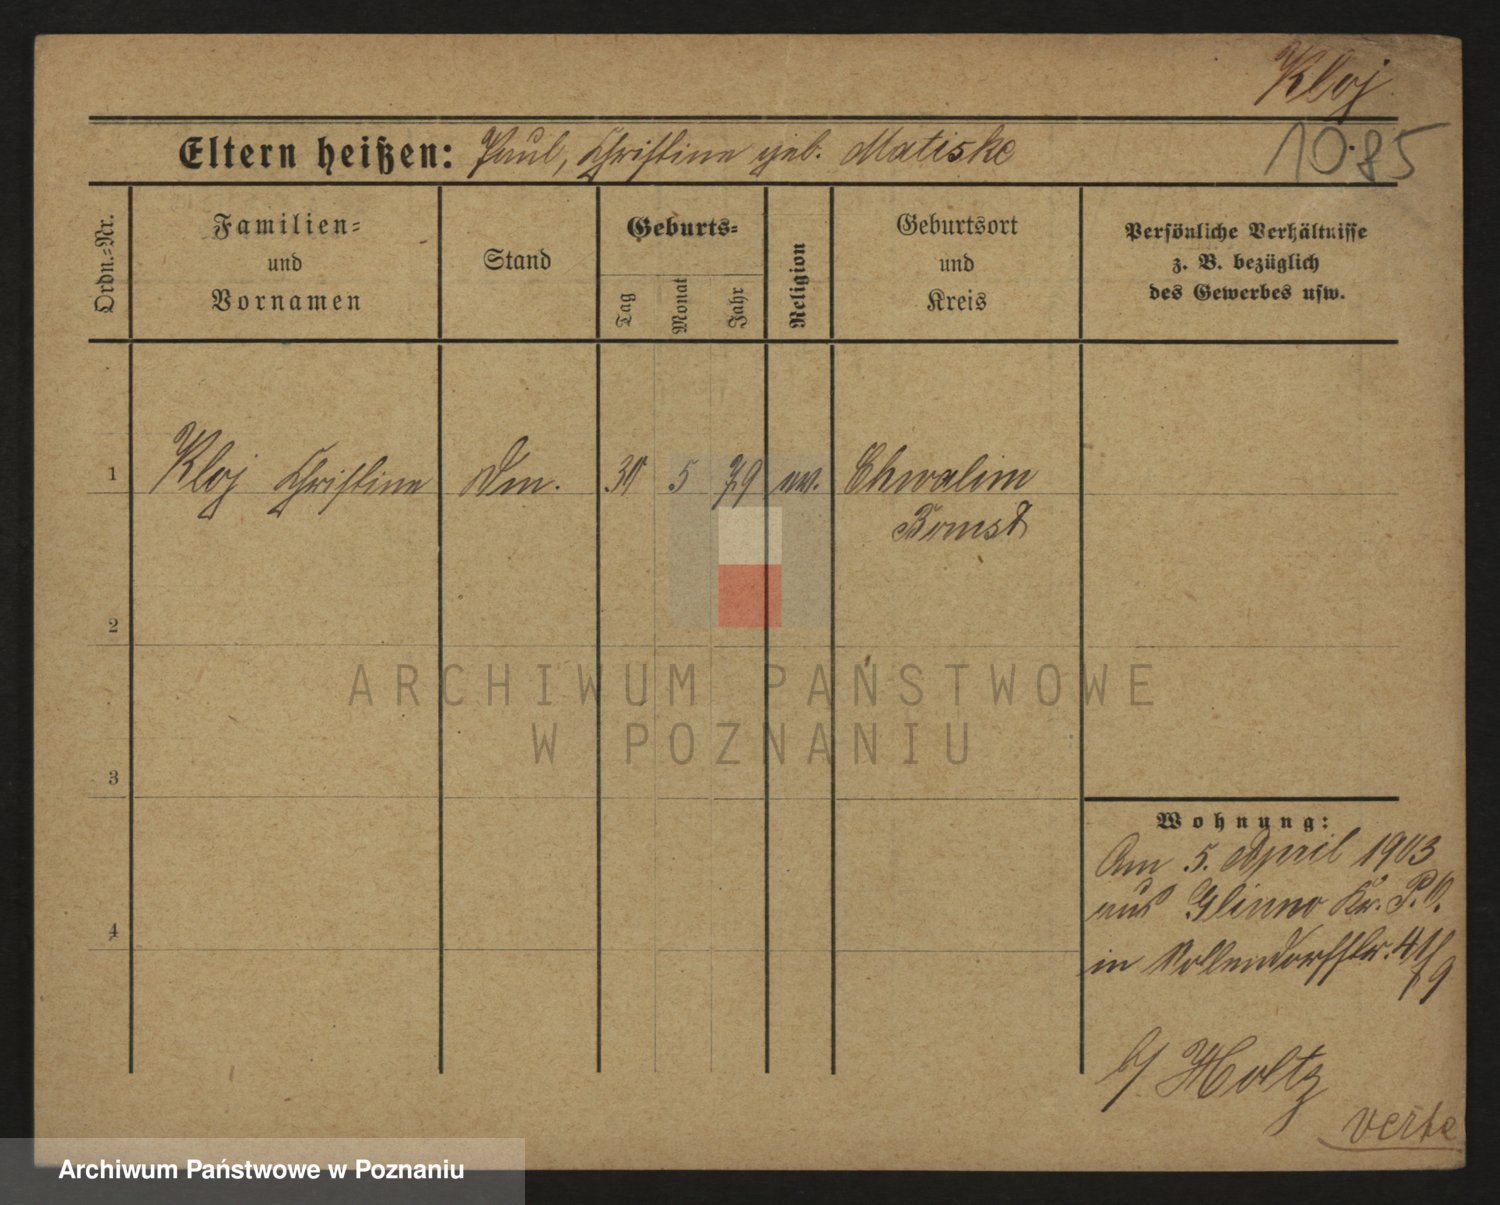 Kloj
Eltern heißen: Paul, Christine geb. Matiske
10.85
Ordn.-Nr.
Familien-
und
Vornamen
Stand
Geburts-
Tag
Monat
Jahr
Religion
Geburtsort
und
Kreis
Persönliche Verhältnisse
z. B. bezüglich
des Gewerbes usw.
1 Kloj Christine 5 79 ev. Chwalim
Bomst
2
ARCHIWUM PAŃSTWOWE
W POZNANIU
3
Wohnung:
Am 5. April 1903
aus Glinno Kr. P.O.
4
in Nollendorfstr.
b/ Holtz
verte
Archiwum Państwowe w Poznaniu